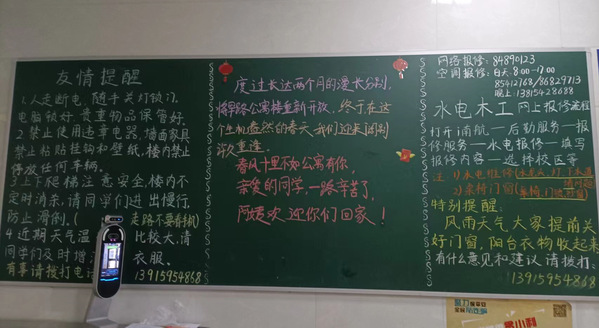 友情提醒
1.人走断电,随手关灯锁门.
电脑锁好,贵重物品保管好.
2.禁止使用违章电器,墙面家具
禁止粘贴挂钩和壁纸,楼内禁止
停放任何车辆.
3.上下爬梯注意安全,楼内不
定时消杀,请同学们进出慢行,
防止滑倒.(走路不要看手机)
4.近期天气温 比较大,请
同学们及时增 衣服.
有事请拨打电话 13915954868
度过长达两个月的漫长分别,
公寓楼重新开放,终于在这
个生机盎然的春天,我们迎来阔别
许久重逢.
春风十里不如公寓有你,
亲爱的同学,一路辛苦了,
阿姨欢迎你们回家!
网络报修:84890123
空调报修:白天8:00-17:00
85412768/86829713
晚上13815428688
水电木工网上报修流程
打开南航一后勤服务一报
修服务一水电报修一填写
报修内容一选择校区等
注:1)水电维修(水龙头,灯,下水道
2)桌椅门窗(桌椅,门
特别提醒:
风雨天气大家提前关
好门窗,阳台衣物收起来
有什么意见和建议请拨打:
13915954868